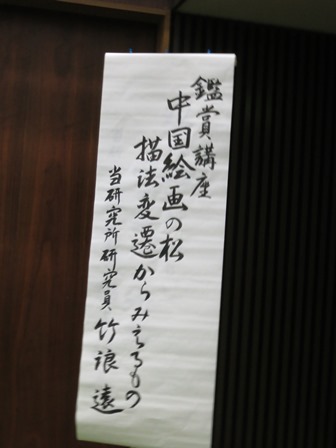 鑑賞講座
中国絵画の松
描法変遷からみえるもの
当研究所研究員 竹浪遠